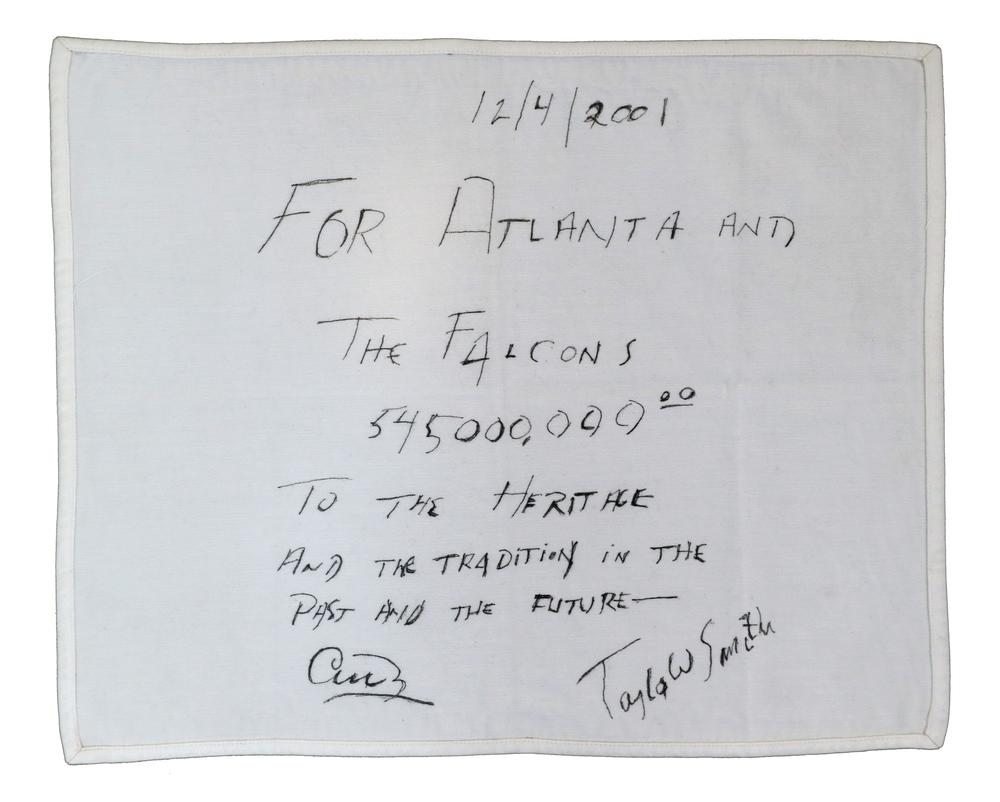 12/4/2001
FOR ATLANTA AND
THE FALCONS
545000,000 00
TO THE HERITAGE
AND THE TRADITION IN THE
PAST AND THE FUTURE—
Taylor W Smith